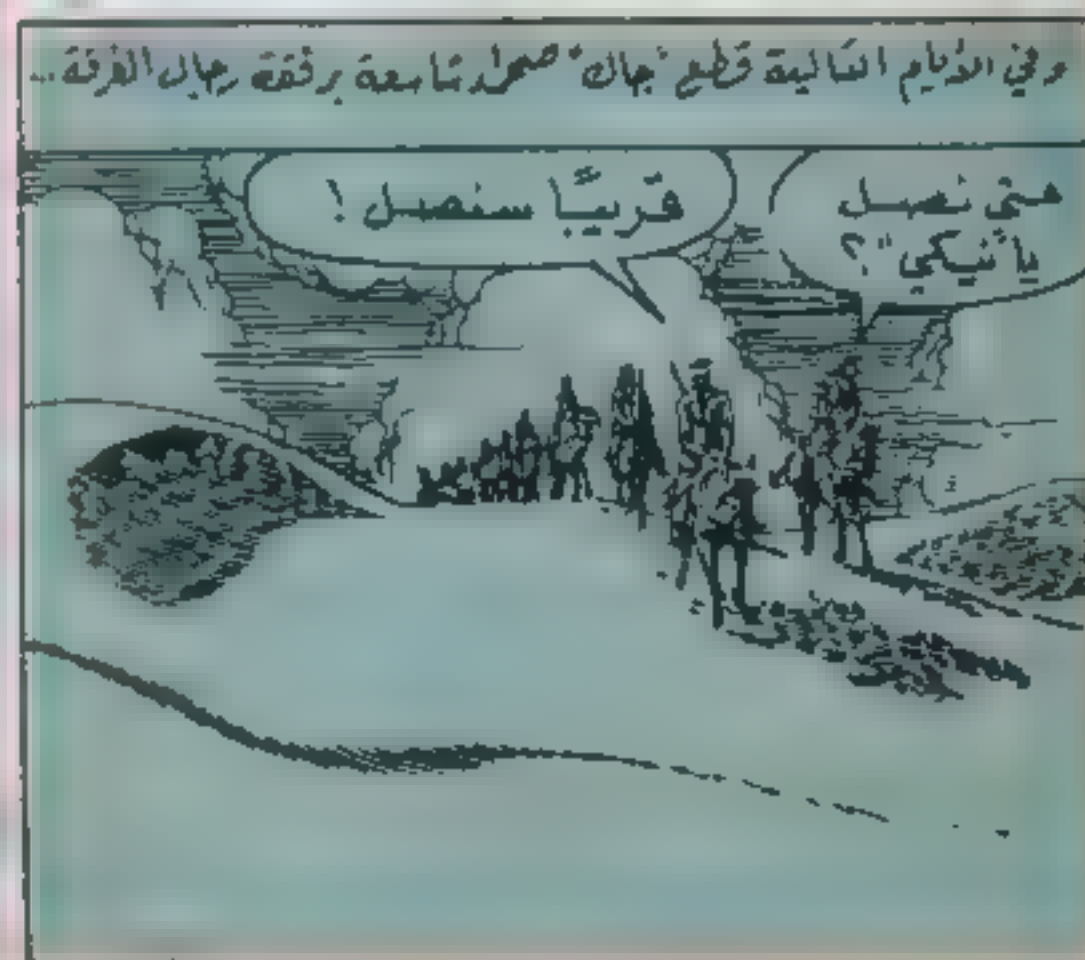 وفي الأيام التالية قطع "جاك" صحراء شاسعة برفقة رجال الفرقة ..
متى نصل
يا "نيكي"؟
قريبًا سنصل !